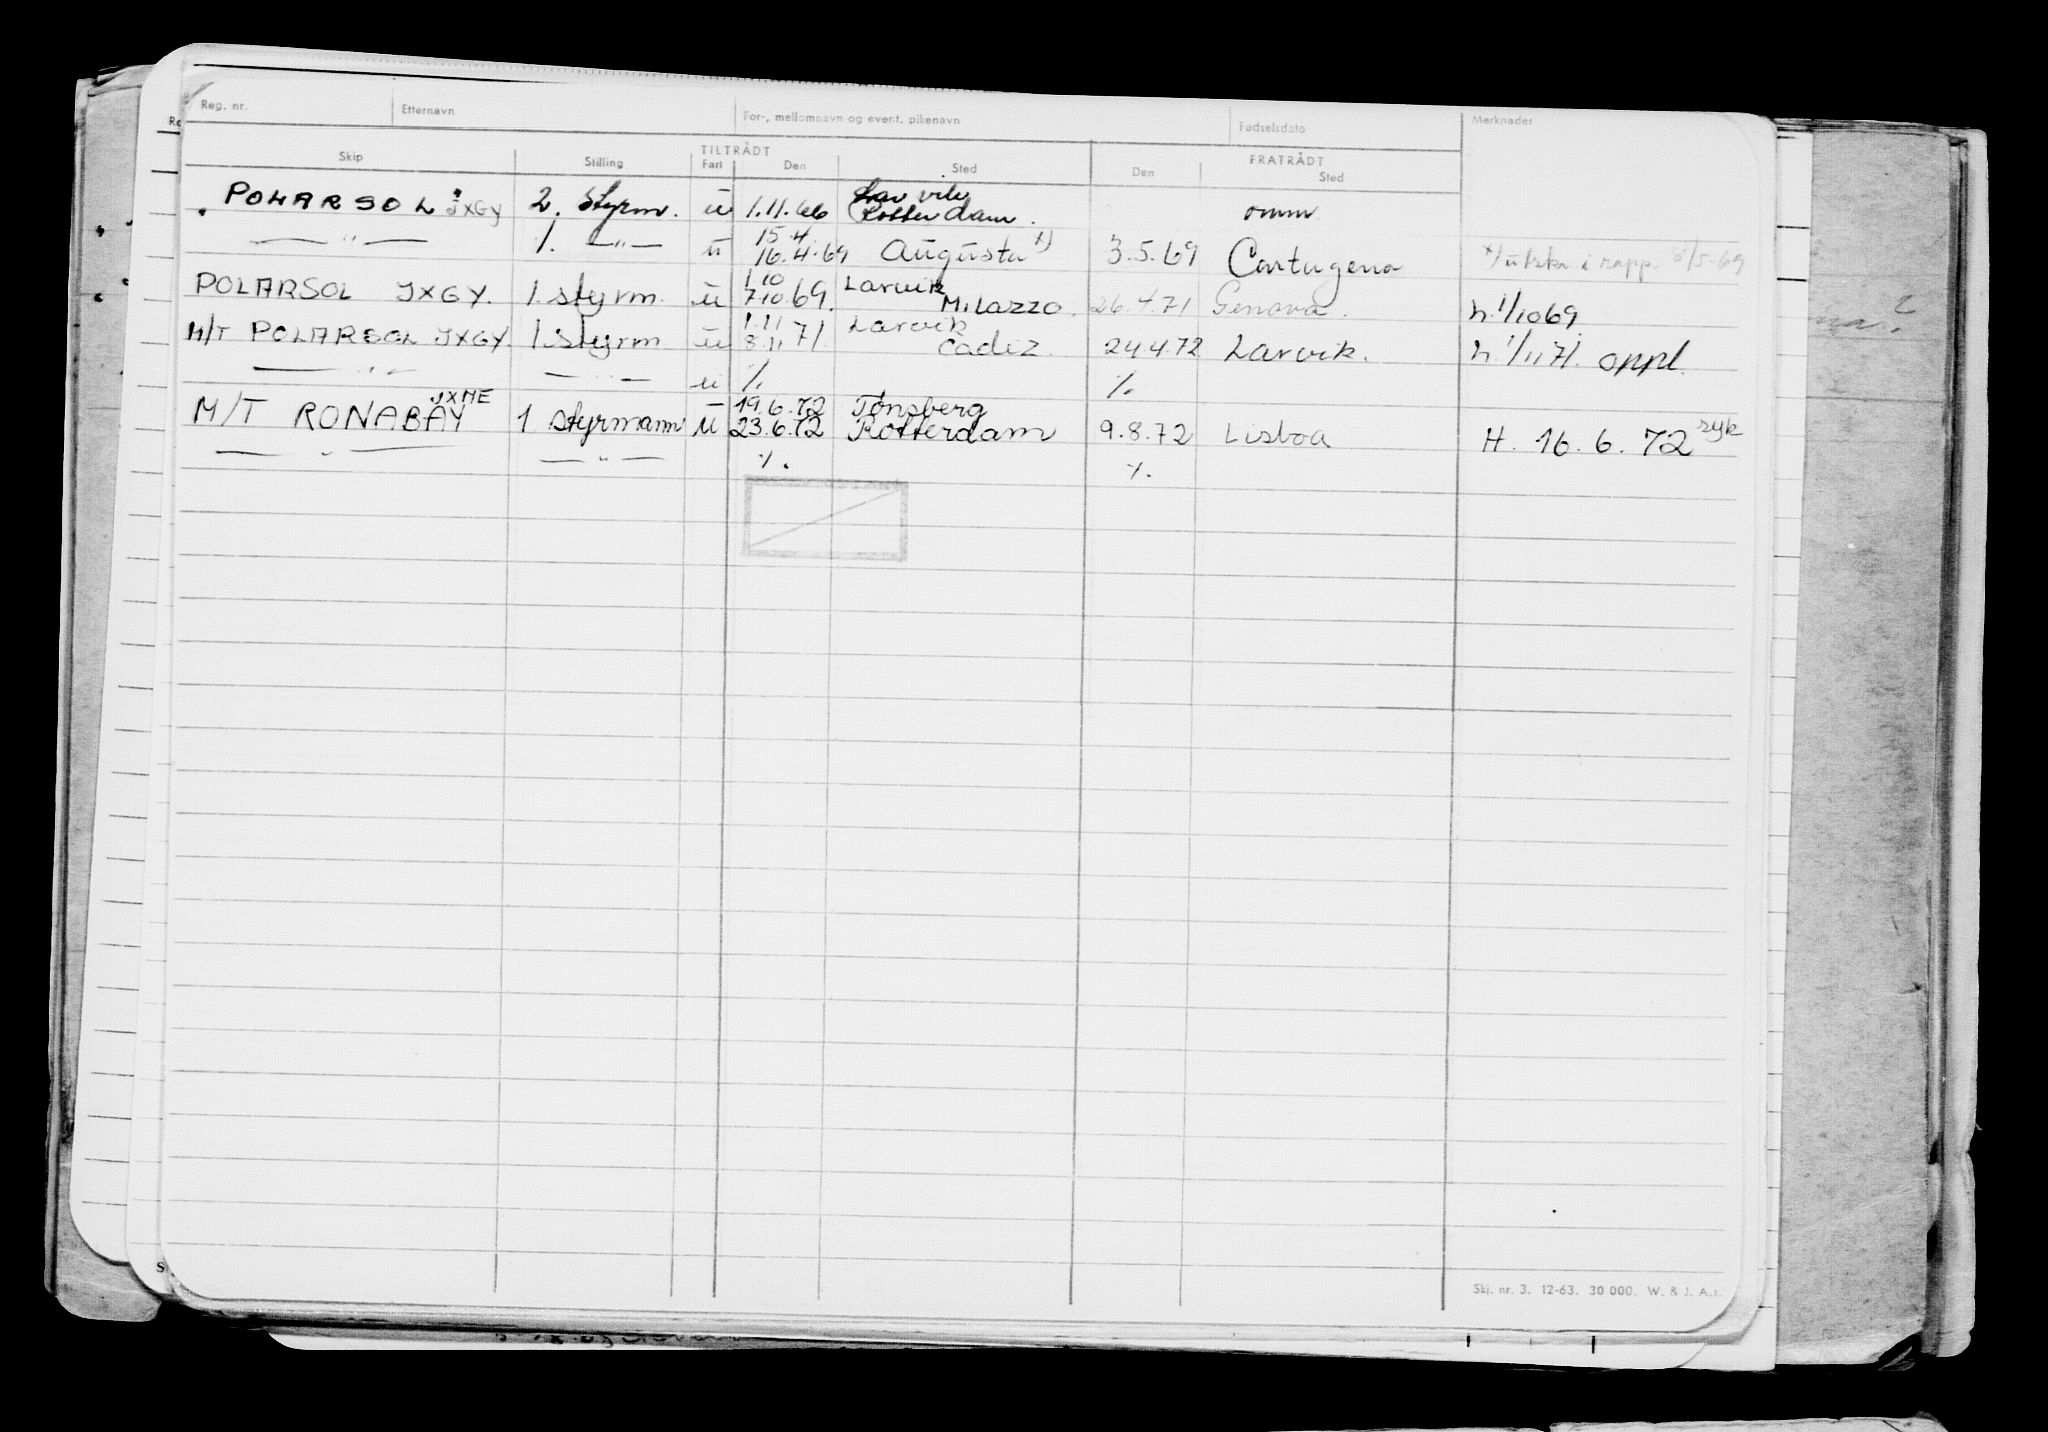 Reg. nr. Etternavn For-, mellomnavn og event. pikenavn Fødselsdato Merknader
TILTRÅDT FRATRÅDT
Skip Stilling Fart Den Sted Den Sted
POLARSOL JXGY 2. styrm. ü 1.11.66 Larvik Rotterdam. omm.
— " — 1. — " — ü 15.4 16.4.69 Augusta x) 3.5.69 Cartagena x) utskr i rapp. 8/5-69
POLARSOL JXGY. 1. styrm. ü 1.10 7.10.69. Larvik Milazzo. 26.4.71 Genova. h. 1/10 69
M/T POLARSOL JXGY. 1 styrm ü 1.11 8.11 71. Larvik Cadiz. 24.4.72 Larvik. h. 1/11 71. oppl.
— " — — " — ü % %
M/T RONABAY JXME 1 styrmann ü 19.6.72 23.6.72 Tønsberg Rotterdam 9.8.72 Lisboa H. 16.6.72 syk
— " — — " — %. %.
Skj. nr. 3. 12-63. 30 000. W. & J. A.s.